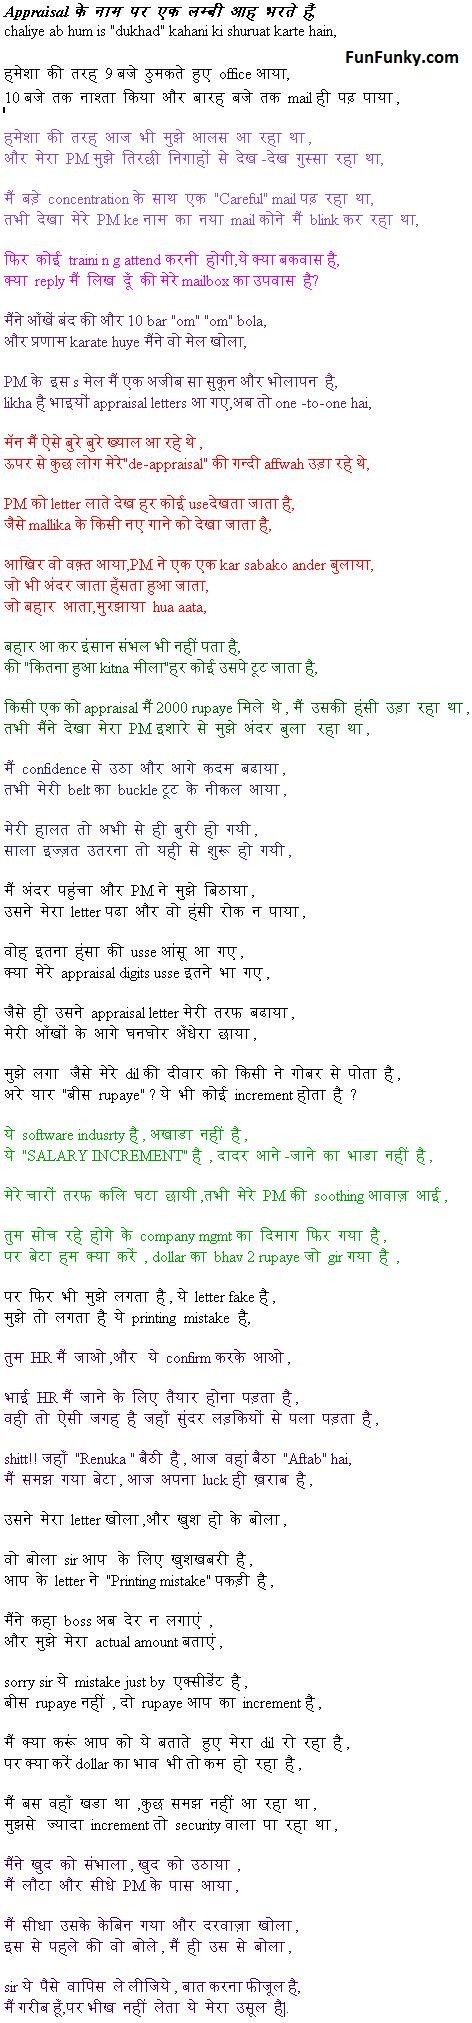 Appraisal के नाम पर एक लम्बी आह भरते हैं,
chaliye ab hum is "dukhad" kahani ki shuruat karte hain,
FunFunky.com
हमेशा की तरह 9 बजे ठुमकते हुए office आया,
10 बजे तक नाश्ता किया और बारह बजे तक mail ही पढ़ पाया ,
हमेशा की तरह आज भी मुझे आलस आ रहा था ,
और मेरा PM मुझे तिरछी निगाहों से देख -देख गुस्सा रहा था,
मैं बड़े concentration के साथ एक "Careful" mail पढ़ रहा था,
तभी देखा मेरे PM ke नाम का नया mail कोने मैं blink कर रहा था,
फिर कोई traini n g attend करनी होगी,ये क्या बकवास है,
क्या reply मैं लिख दूँ की मेरे mailbox का उपवास है?
मैंने आँखें बंद की और 10 bar "om" "om" bola,
और प्रणाम karate huye मैंने वो मेल खोला,
PM के इस s मेल मैं एक अजीब सा सुकून और भोलापन है,
likha है भाइयों appraisal letters आ गए,अब तो one -to-one hai,
मॅन मैं ऐसे बुरे बुरे ख्याल आ रहे थे ,
ऊपर से कुछ लोग मेरे"de-appraisal" की गन्दी affwah उड़ा रहे थे,
PM को letter लाते देख हर कोई useदेखता जाता है,
जैसे mallika के किसी नए गाने को देखा जाता है,
आखिर वो वक़्त आया,PM ने एक एक kar sabako ander बुलाया,
जो भी अंदर जाता हँसता हुआ जाता,
जो बहार आता,मुरझाया hua aata,
बहार आ कर इंसान संभल भी नहीं पता है,
की "कितना हुआ kitna मीला"हर कोई उसपे टूट जाता है,
किसी एक को appraisal मैं 2000 rupaye मिले थे , मैं उसकी हंसी उड़ा रहा था ,
तभी मैंने देखा मेरा PM इशारे से मुझे अंदर बुला रहा था ,
मैं confidence से उठा और आगे कदम बढाया ,
तभी मेरी belt का buckle टूट के नीकल आया ,
मेरी हालत तो अभी से ही बुरी हो गयी ,
साला इज्ज़त उतरना तो यही से शुरू हो गयी ,
मैं अंदर पहुंचा और PM ने मुझे बिठाया ,
उसने मेरा letter पढा और वो हंसी रोक न पाया ,
वोह इतना हंसा की usse आंसू आ गए ,
क्या मेरे appraisal digits usse इतने भा गए ,
जैसे ही उसने appraisal letter मेरी तरफ बढाया ,
मेरी आँखों के आगे घनघोर अँधेरा छाया ,
मुझे लगा जैसे मेरे dil की दीवार को किसी ने गोबर से पोता है ,
अरे यार "बीस rupaye" ? ये भी कोई increment होता है ?
ये software indusrty है , अखाडा नहीं है ,
ये "SALARY INCREMENT" है , दादर आने -जाने का भाडा नहीं है ,
मेरे चारों तरफ कलि घटा छायी ,तभी मेरे PM की soothing आवाज़ आई ,
तुम सोच रहे होगे के company mgmt का दिमाग फिर गया है ,
पर बेटा हम क्या करें , dollar का bhav 2 rupaye जो gir गया है ,
पर फिर भी मुझे लगता है , ये letter fake है ,
मुझे तो लगता है ये printing mistake है,
तुम HR मैं जाओ ,और ये confirm करके आओ ,
भाई HR मैं जाने के लिए तैयार होना पड़ता है ,
वही तो ऐसी जगह है जहाँ सुंदर लड़कियों से पला पड़ता है ,
shitt!! जहाँ "Renuka " बैठी है , आज वहां बैठा "Aftab" hai,
मैं समझ गया बेटा , आज अपना luck ही ख़राब है ,
उसने मेरा letter खोला ,और खुश हो के बोला ,
वो बोला sir आप के लिए खुशखबरी है ,
आप के letter ने "Printing mistake" पकड़ी है ,
मैंने कहा boss अब देर न लगाएं ,
और मुझे मेरा actual amount बताएं ,
sorry sir ये mistake just by एक्सीडेंट है ,
बीस rupaye नहीं , दो rupaye आप का increment है ,
मैं क्या करूं आप को ये बताते हुए मेरा dil रो रहा है ,
पर क्या करें dollar का भाव भी तो कम हो रहा है ,
मैं बस वहाँ खडा था ,कुछ समझ नहीं आ रहा था ,
मुझसे ज्यादा increment तो security वाला पा रहा था ,
मैंने खुद को संभाला , खुद को उठाया ,
मैं लौटा और सीधे PM के पास आया ,
मैं सीधा उसके केबिन गया और दरवाज़ा खोला ,
इस से पहले की वो बोले , मैं ही उस से बोला ,
sir ये पैसे वापिस ले लीजिये , बात करना फीजूल है,
मैं गरीब हूँ,पर भीख नहीं लेता ये मेरा उसूल है|.